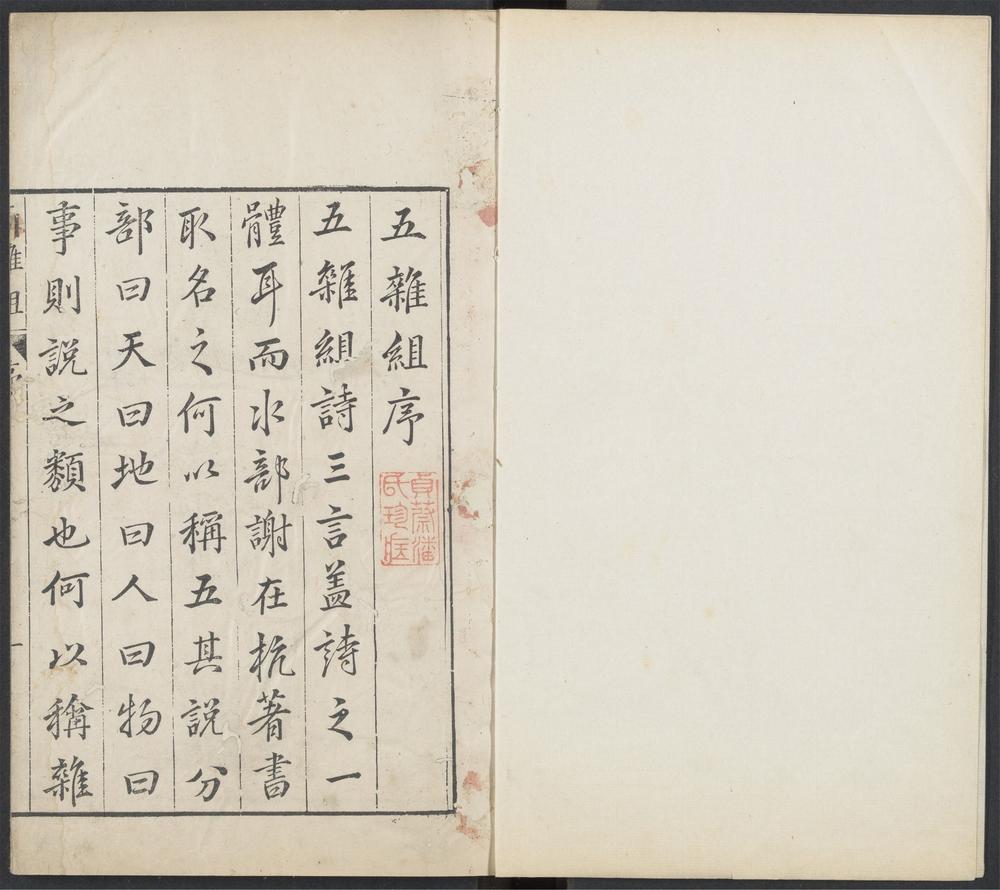 五雜組序
貞蕤潘
氏珍匧
五雜組詩三言盖詩之一
體耳而水部謝在杭著書
取名之何以稱五其說分
部曰天曰地曰人曰物曰
事則說之類也何以稱雜
雜組
一